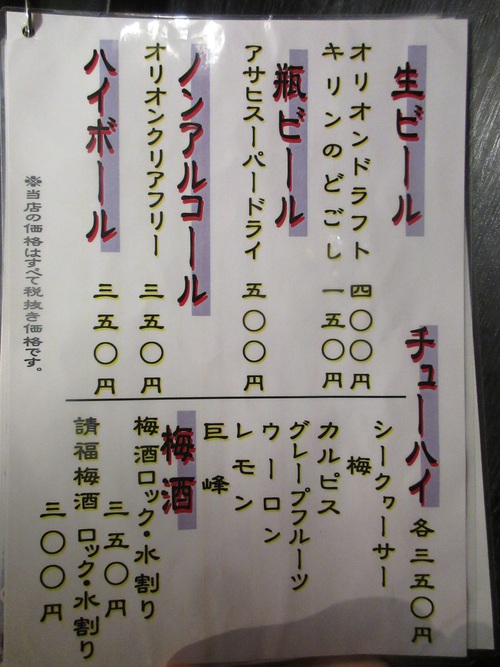 生ビール
オリオンドラフト 四〇〇円
キリンのどごし 一五〇円
瓶ビール
アサヒスーパードライ 五〇〇円
ノンアルコール
オリオンクリアフリー 三五〇円
ハイボール 三五〇円
※当店の価格はすべて税抜き価格です。
チューハイ 各三五〇円
シークヮーサー
梅
カルピス
グレープフルーツ
ウーロン
レモン
巨峰
梅酒
梅酒ロック・水割り
三五〇円
請福梅酒 ロック・水割り
三〇〇円